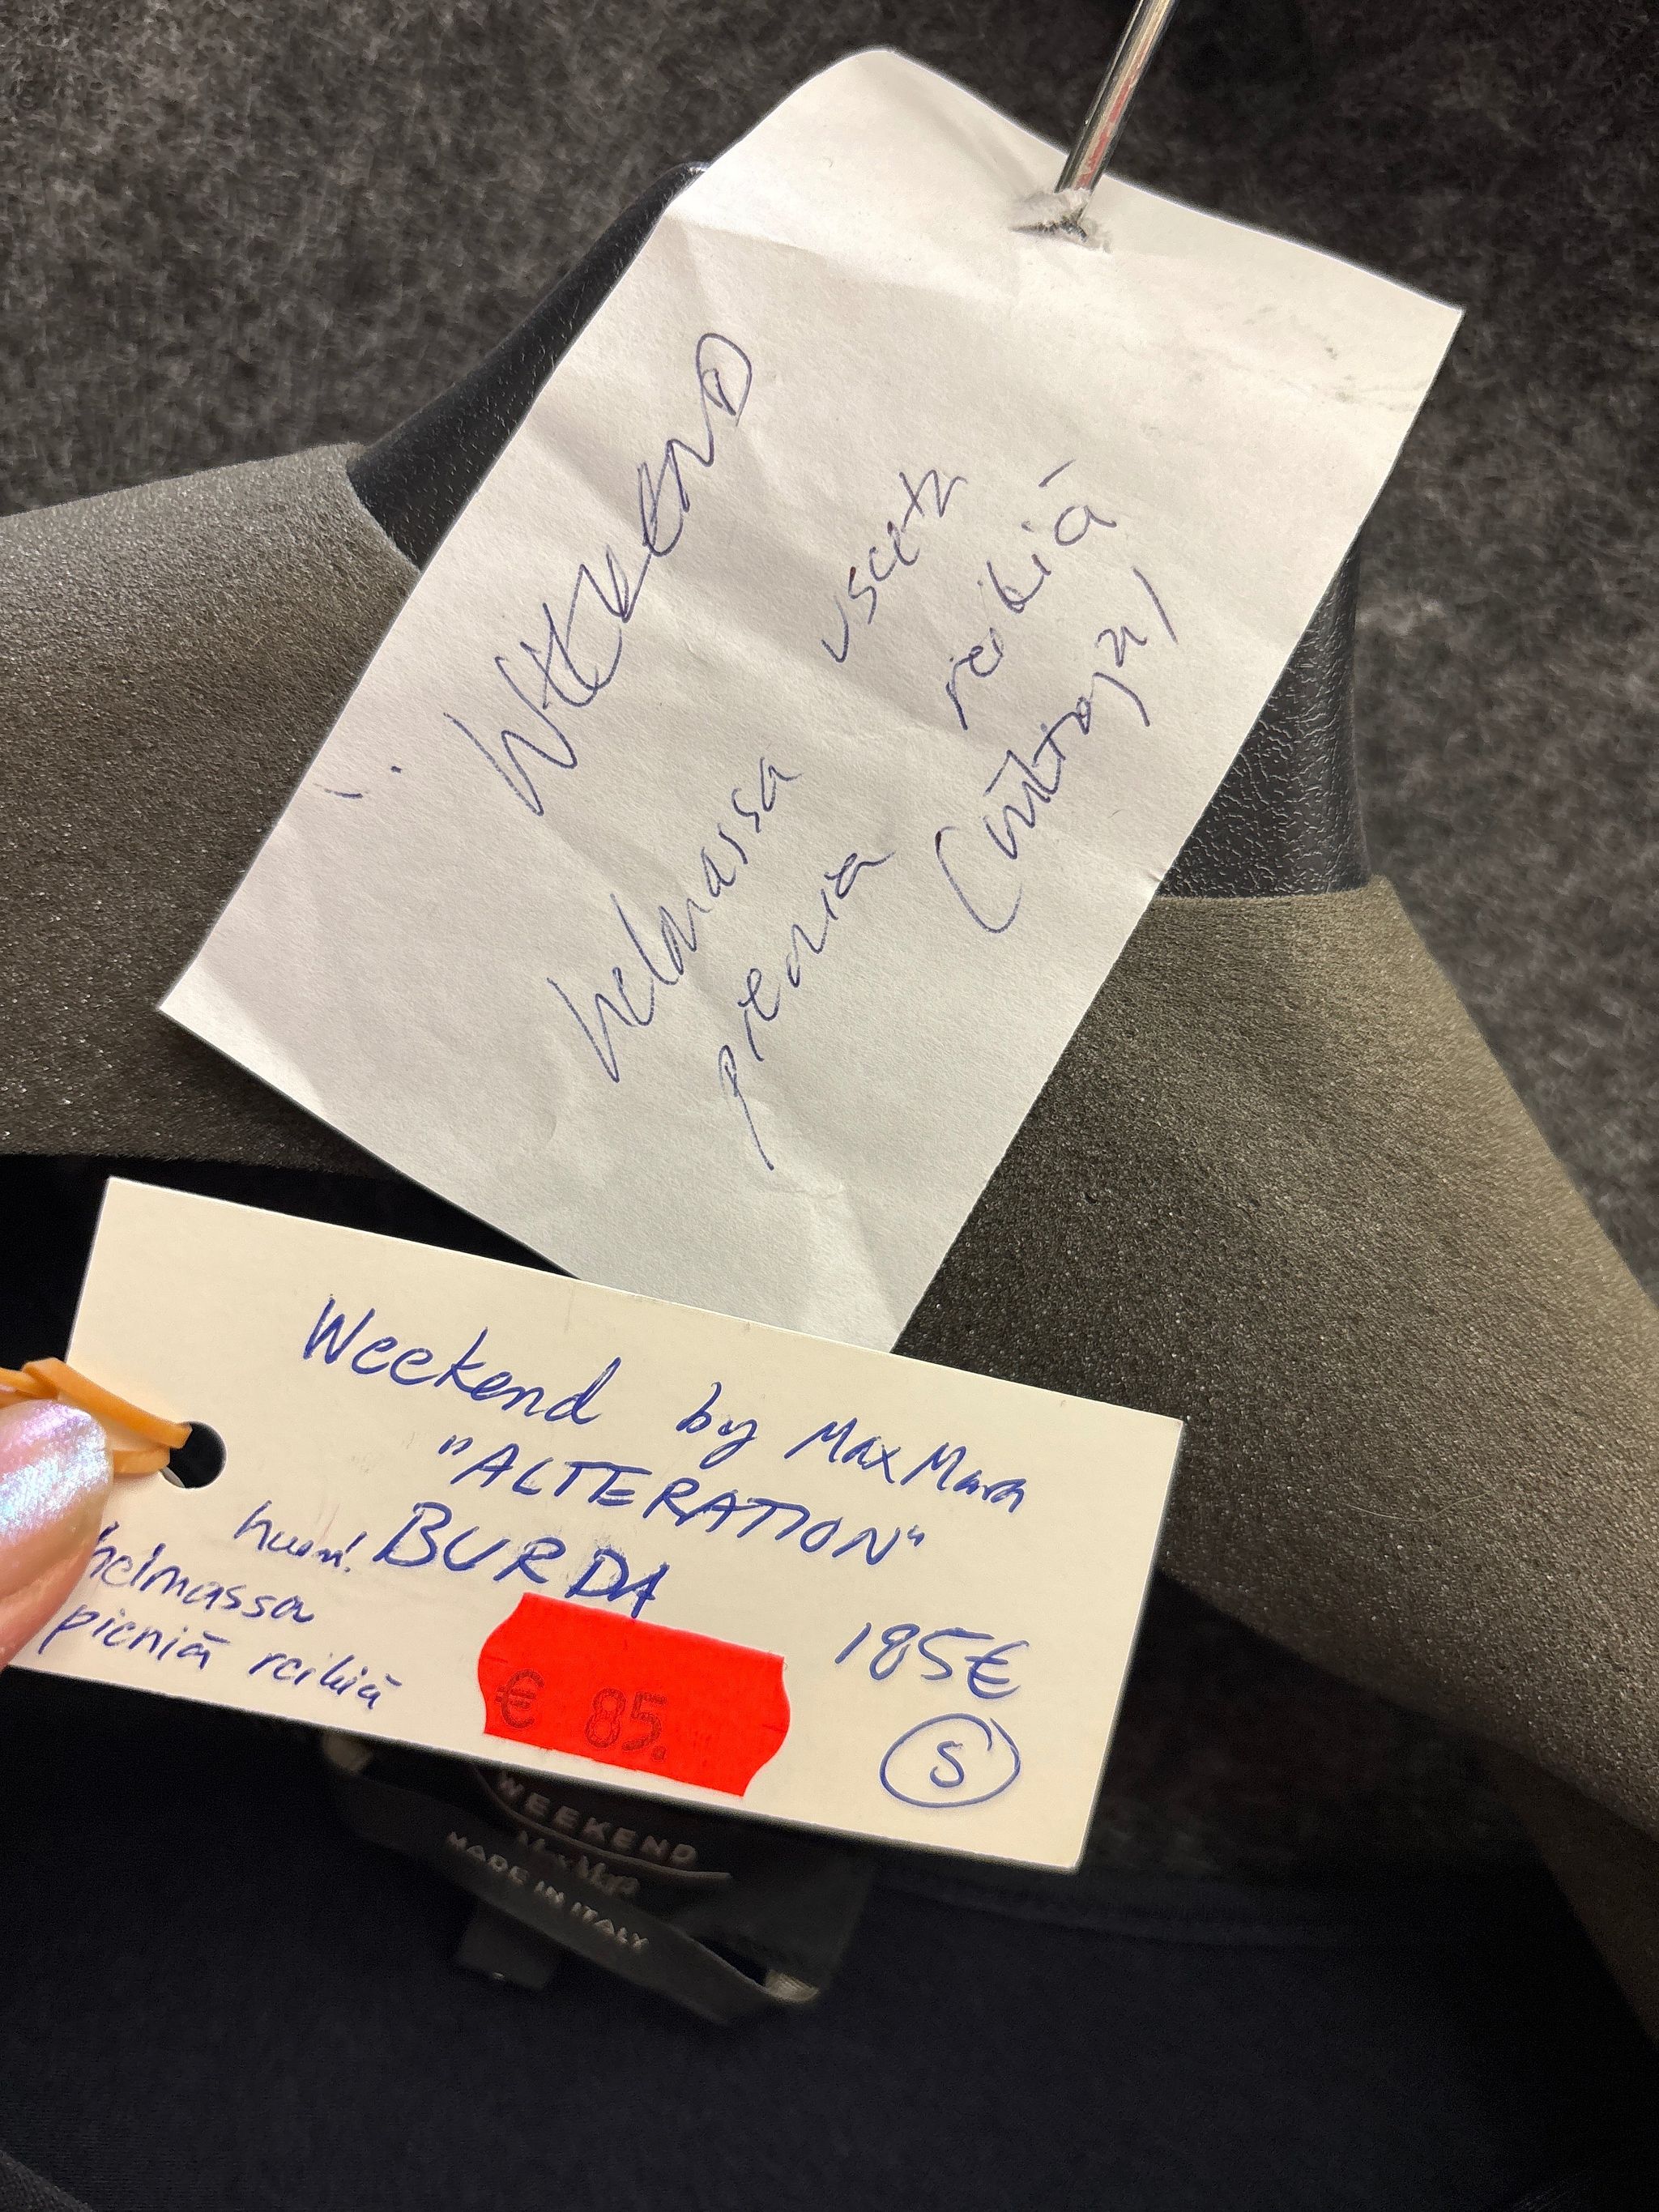 WEEKEND
helmassa useita
pieniä reikiä
Weekend by MaxMara
"ALTERATION"
huom! BURDA
helmassa
pieniä reikiä
185€
€ 85.
S
WEEKEND
MaxMara
MADE IN ITALY